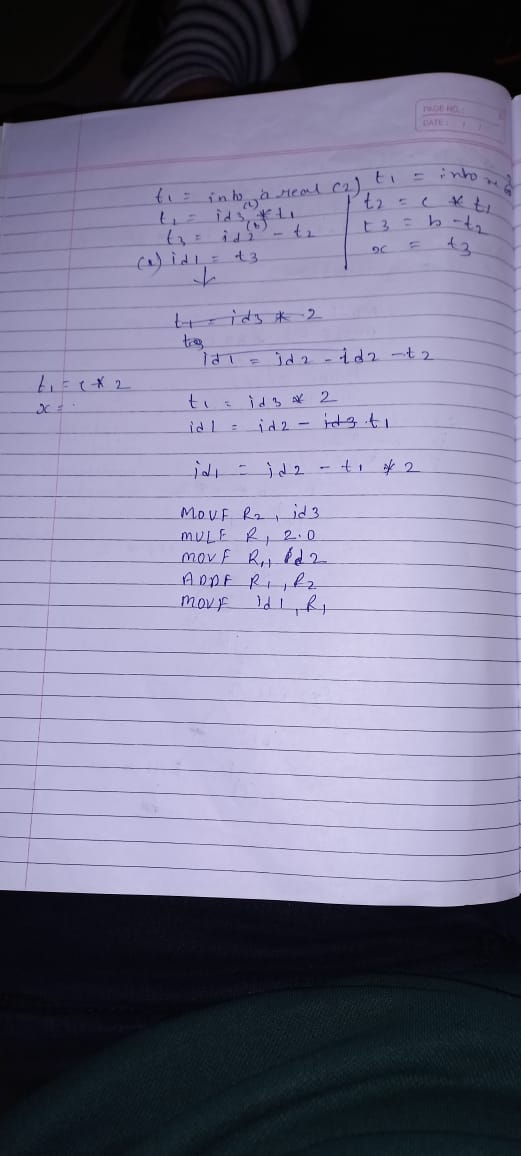 PAGE NO.:
DATE: / /
t1 = into a real (2) t1 = into
t1 = id3 * t1 t2 = c * t1
(c)
t3 = id2 - t2 t3 = b - t2
(b)
(a) id1 = t3 x = t3
↓
t1 = id3 * 2
id1 = id2 - id2 - t2
t1 = c * 2
x = .
t1 = id3 * 2
id1 = id2 - id3 t1
id1 = id2 - t1 * 2
MOVF R2, id3
MULF R, 2.0
MOVF R1, id2
ADDF R1, R2
MOVF id1, R1